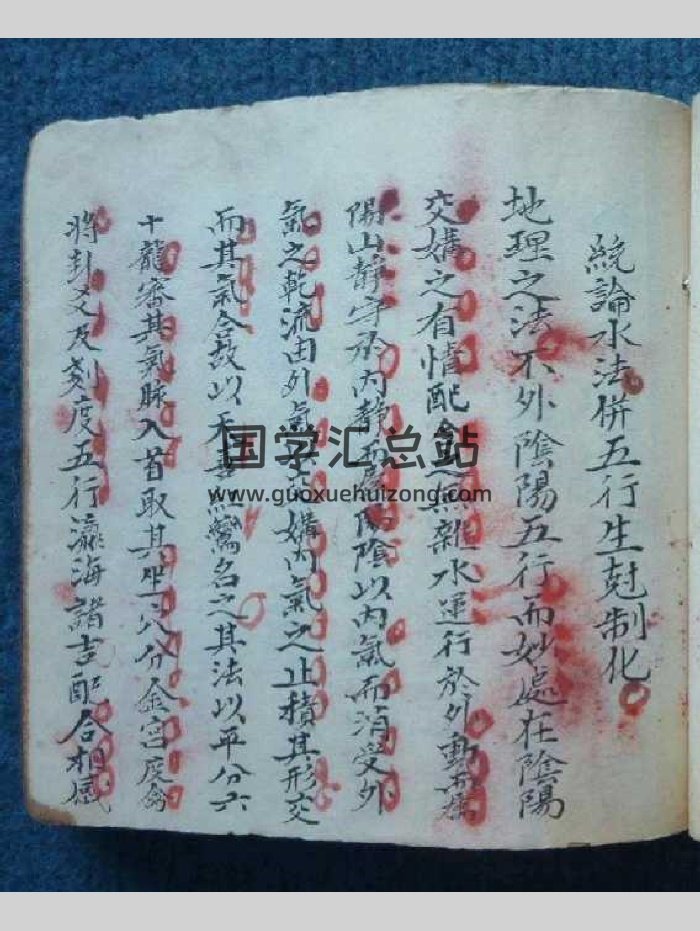 統論水法併五行生尅制化
地理之法不外陰陽五行而妙處在陰陽
交媾之有情配合無雜水運行於外動而爲
陽山靜守於內靜而爲陰陰以內氣而消受外
氣之乾流由外氣媾內氣之止積其形交
而其氣合故以天喜紅鸞名之其法以平分六
十龍審其氣脉入首取其坐穴分金宮度禽
將卦爻及刻度五行瀛海諸吉配合相感
国学汇总站
www.guoxuehuizong.com